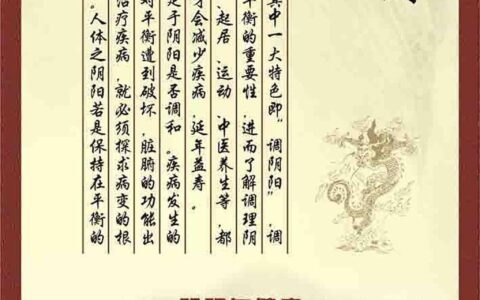 其中一大特色即"调阴阳"，调
平衡的重要性，进而了解调理阴
、起居、运动、中医养生等，都
才会减少疾病，延年益寿。
定于阴阳是否调和。疾病发生的
对平衡遭到破坏，脏腑的功能出
治疗疾病，就必须探求病变的根
。人体之阴阳若是保持在平衡的